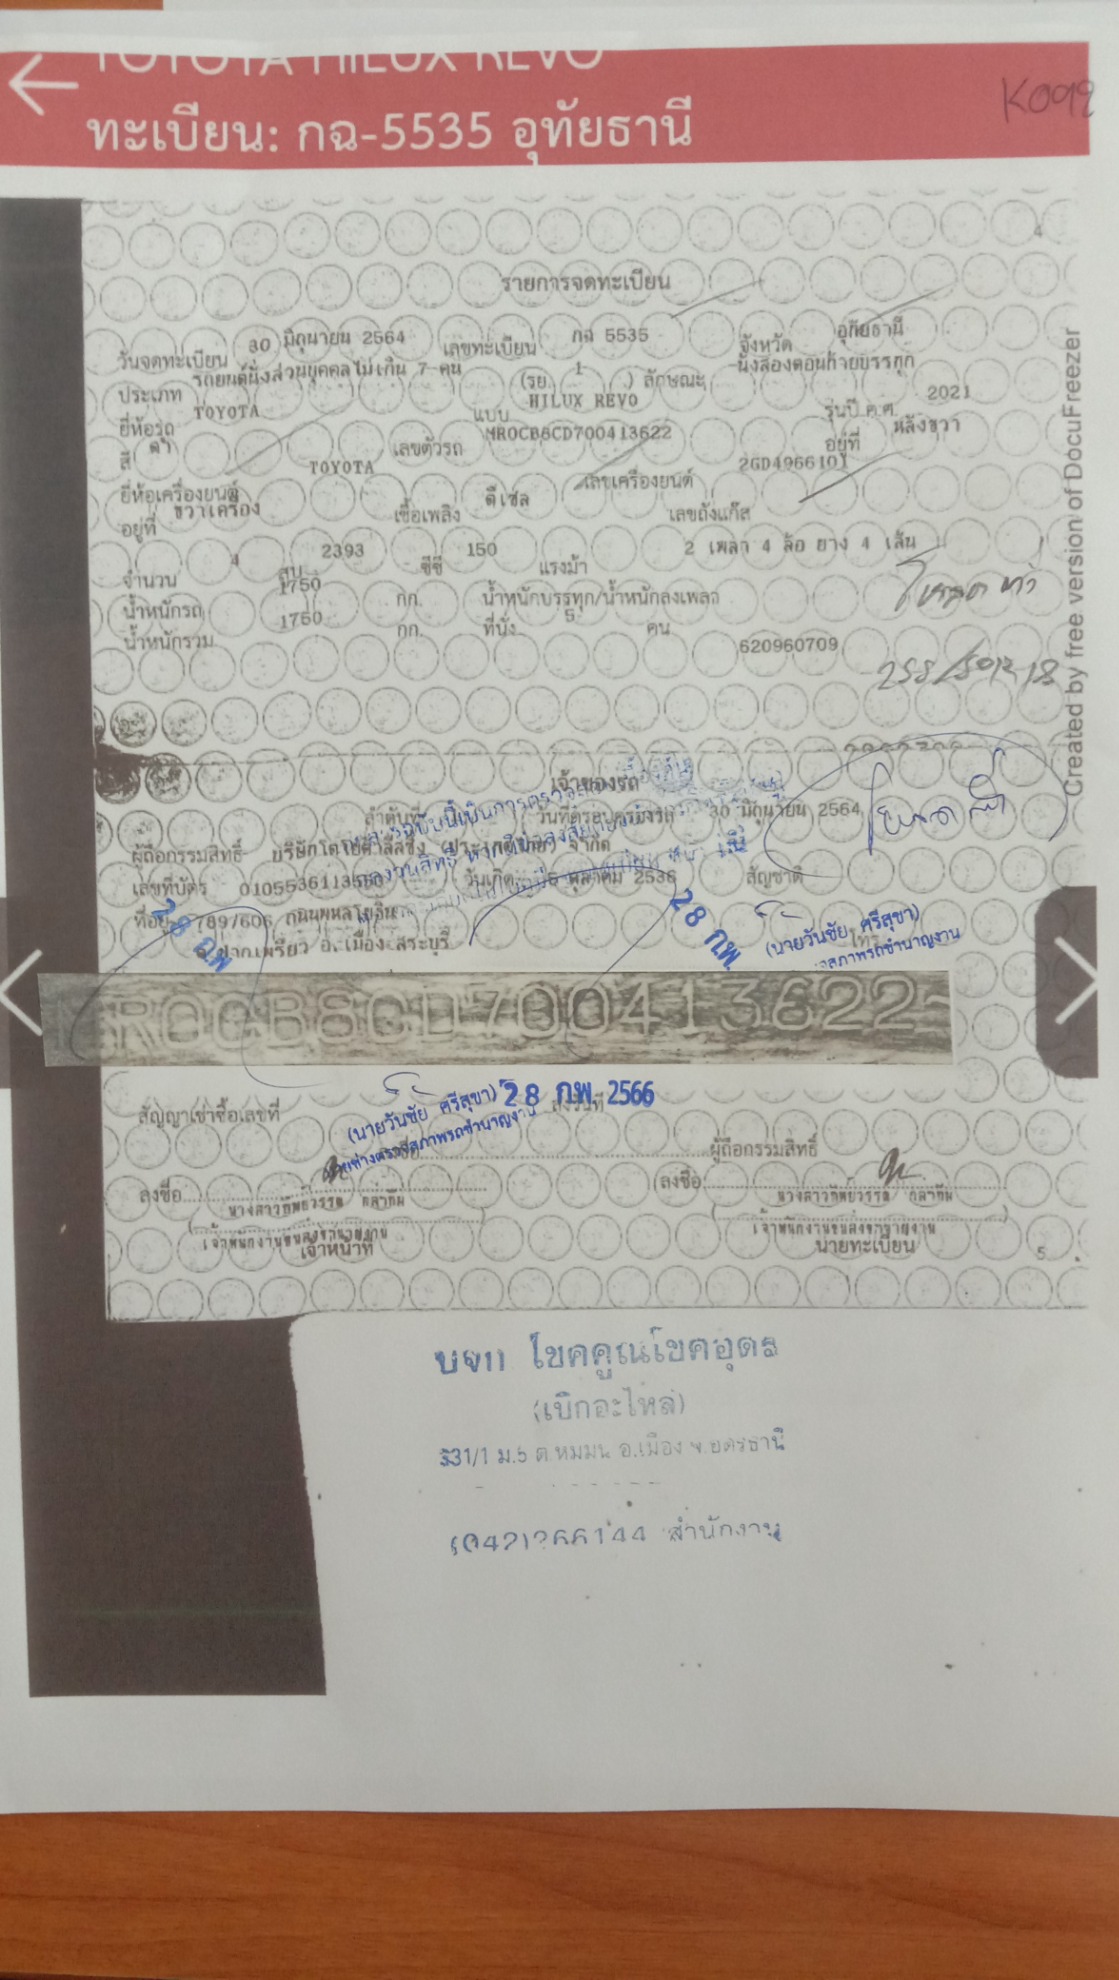 TOYOTA HILUX REVO
ทะเบียน: กฉ-5535 อุทัยธานี
K092
4
รายการจดทะเบียน
วันจดทะเบียน 30 มิถุนายน 2564 เลขทะเบียน กฉ 5535 จังหวัด อุทัยธานี
ประเภท รถยนต์นั่งส่วนบุคคลไม่เกิน 7 คน (รย. 1 ) ลักษณะ นั่งสองตอนท้ายบรรทุก
ยี่ห้อรถ TOYOTA แบบ HILUX REVO รุ่นปี ค.ศ. 2021
สี ดำ เลขตัวรถ MR0CB8CD700413622 อยู่ที่ หลังขวา
ยี่ห้อเครื่องยนต์ TOYOTA เลขเครื่องยนต์ 2GD4966101
อยู่ที่ ขวาเครื่อง เชื้อเพลิง ดีเซล เลขถังแก๊ส
จำนวน 4 สูบ 2393 ซีซี 150 แรงม้า 2 เพลา 4 ล้อ ยาง 4 เส้น
น้ำหนักรถ 1750 กก. น้ำหนักบรรทุก/น้ำหนักลงเพลา
น้ำหนักรวม 1750 กก. ที่นั่ง 5 คน
620960709
Created by free version of DocuFreezer
เจ้าของรถ
ลำดับที่ วันที่ครอบครองรถ 30 มิถุนายน 2564
ผู้ถือกรรมสิทธิ์ บริษัทโตโยต้าลีสซิ่ง (ประเทศไทย) จำกัด
เลขที่บัตร วันเกิด ตุลาคม 2536 สัญชาติ
ที่อยู่ 789/606 ถนนพหลโยธิน
ต.ปากเพรียว อ.เมืองสระบุรี
28 ก.พ.
28 ก.พ.
(นายวันชัย ศรีสุขา)
R0CB8CD700413622
สัญญาเช่าซื้อเลขที่ ลงวันที่
28 ก.พ. 2566
(นายวันชัย ศรีสุขา)
นายช่างตรวจสภาพรถชำนาญงาน
ผู้ถือกรรมสิทธิ์
ลงชื่อ (ลงชื่อ
นางสาวทิพย์วรรณ นางสาวทิพย์วรรณ
เจ้าพนักงานขนส่งชำนาญงาน เจ้าพนักงานขนส่งชำนาญงาน
เจ้าหน้าที่ นายทะเบียน
5
บจก โชคคูณโชคอุดร
(เบิกอะไหล่)
331/1 ม.5 ต.หมูม่น อ.เมือง จ.อุดรธานี
สำนักงาน